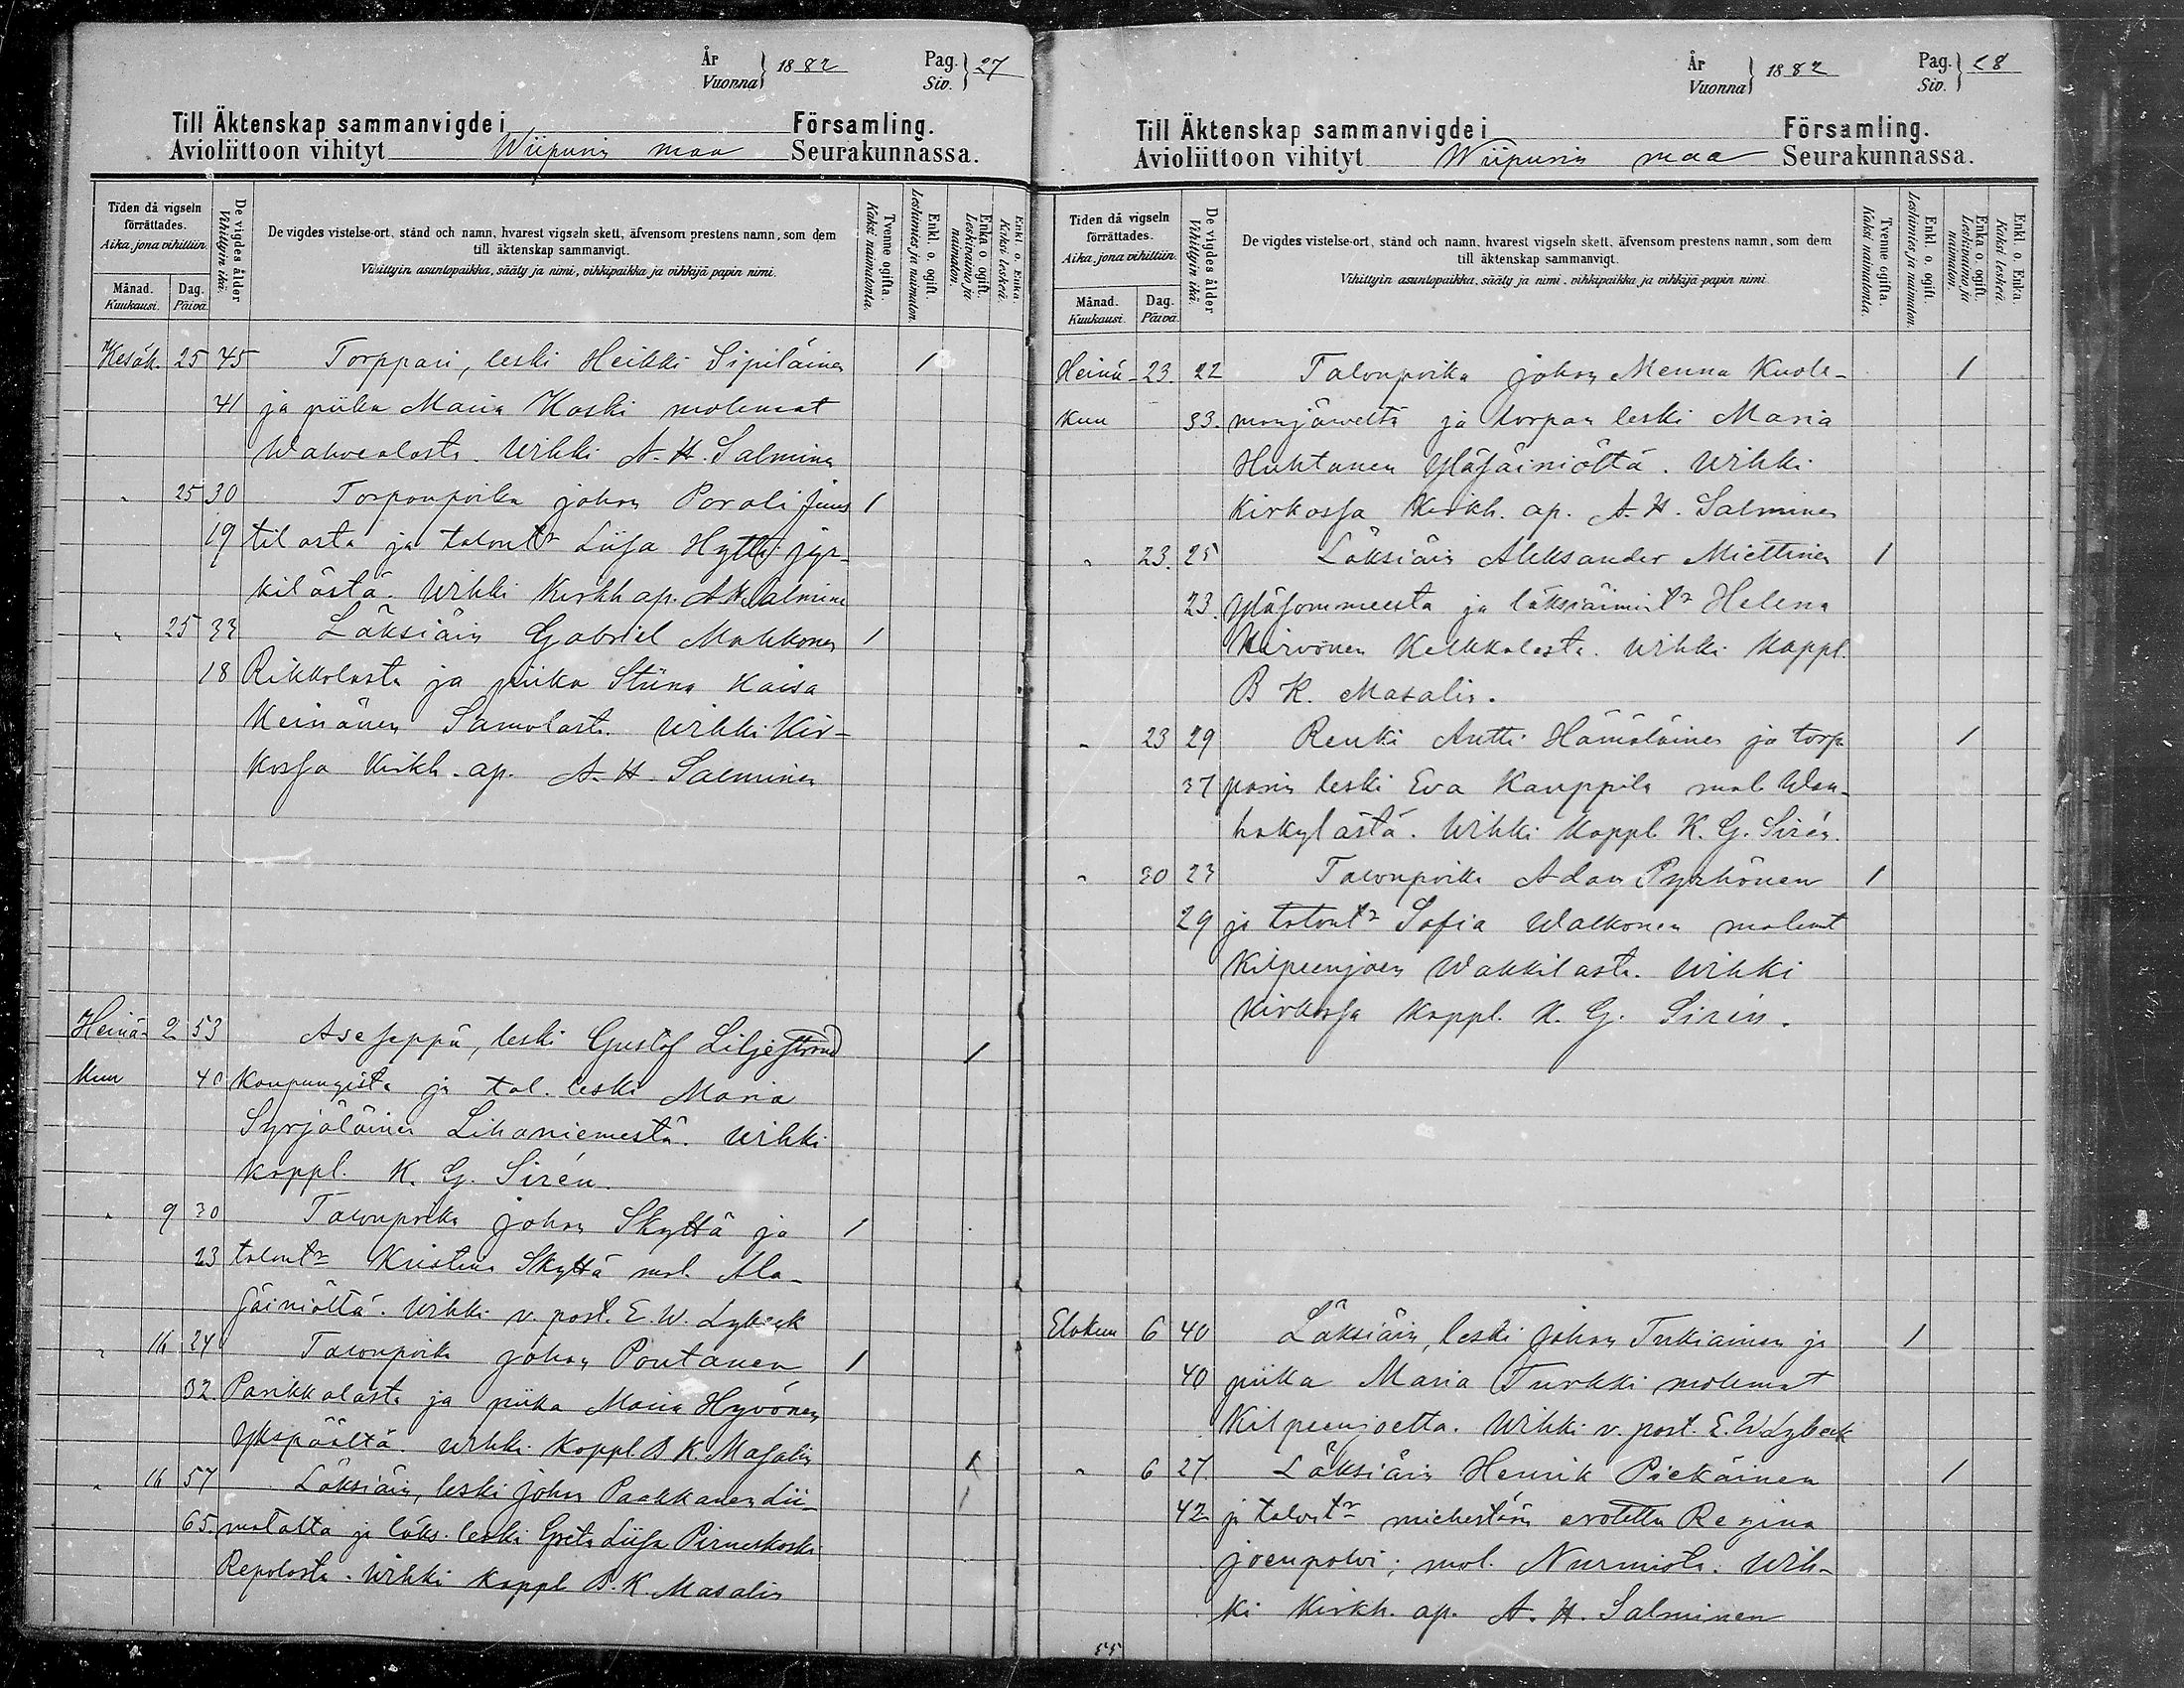 År
Vuonna } 1882
Pag.
Siv. } 27
Till Äktenskap sammanvigde i Församling.
Avioliittoon vihityt Wiipurin maa Seurakunnassa.
Tiden då vigseln förrättades.
Aika, jona vihittiin.
Månad. Kuukausi.
Dag. Päivä.
De vigdes ålder
Vihittyin ikä.
De vigdes vistelse-ort, stånd och namn, hvarest vigseln skett, äfvensom prestens namn, som dem
till äktenskap sammanvigt.
Vihittyin asuntopaikka, sääty ja nimi, vihkipaikka ja vihkijä papin nimi.
Tvenne ogifta.
Kaksi naimatonta.
Enkl. o. ogift.
Leskimies ja naimaton.
Enka o. ogift.
Leskinaimo ja naimaton.
Enkl. o. Enka.
Kaksi leskeä.
Kesäk. 25 45 Torppari, leski Heikki Sipiläinen 1
41 ja piika Maria Koski molemat
Wahvealasta. Wihki A. H. Salminen
" 25 30 Torponpoika Johan Porali Juus 1
19 tilasta ja talont:r Liisa Hytti Jyr-
kilästä. Wihki Kirkh. ap. A H Salminen
" 25 33 Läksiäin Gabriel Mahkonen 1
18 Rikkolasta ja piika Stiina Kaisa
Keinänen Samolasta. Wihki Kir-
kossa Kirkh. ap. A. H. Salminen
Heinä- 2 53 Aseseppä, leski Gustaf Liljestrand 1
kuu 40 Kaupungista ja tal. leski Maria
Syrjäläinen Lihaniemestä. Wihki
Kappl. K. G. Sirén.
" 9 30 Talonpoika Johan Skyttä ja 1
23 talont:r Kristina Skyttä mol. Ala-
säiniöltä. Wihki v. past. E. W. Lybeck
" 16 24 Talonpoika Johan Pontanen 1
32. Parikkalasta ja piika Maria Hyvönen
Ykspäältä. Wihki Kappl. B K. Masalin
" 16 57 Läksiäin, leski Johan Paakkanen Lii- 1
65. matalta ja läks. leski Greta Liisa Pirneskoski
Repolasta. Wihki Kappl B. K. Masalin
År
Vuonna } 1882
Pag.
Siv. } 28
Till Äktenskap sammanvigde i Församling.
Avioliittoon vihityt Wiipurin maa Seurakunnassa.
Tiden då vigseln förrättades.
Aika, jona vihittiin.
Månad. Kuukausi.
Dag. Päivä.
De vigdes ålder
Vihittyin ikä.
De vigdes vistelse-ort, stånd och namn, hvarest vigseln skett, äfvensom prestens namn, som dem
till äktenskap sammanvigt.
Vihittyin asuntopaikka, sääty ja nimi, vihkipaikka ja vihkijä papin nimi
Tvenne ogifta.
Kaksi naimatonta.
Enkl. o. ogift.
Leskimies ja naimaton.
Enka o. ogift.
Leskinaimo ja naimaton.
Enkl. o. Enka.
Kaksi leskeä.
Heinä- 23. 22 Talonpoika Johan Menna Kuole- 1
kuu 33. manjärveltä ja torpan leski Maria
Huhtanen Yläsäiniöltä. Wihki
Kirkossa Kirkh. ap. A. H. Salminen
" 23. 25 Läksiäin Aleksander Miettinen 1
23. Yläsommeesta ja läksiäimit:r Helena
Hirvonen Kelkkalasta. Wihki Kappl.
B K. Masalin.
" 23 29 Renki Antti Hämäläinen ja torp- 1
37 parin leski Eva Kauppila mol. Wan-
hakylästä. Wihki Kappl. K. G. Sirén.
" 30 23 Talonpoika Adam Pyrhönen 1
29 ja talont:r Sofia Walkonen molemt
Kilpeenjoen Wakkilasta. Wihki
Kirkossa Kappl. K. G. Sirén.
Elokuu 6 40 Läksiäin, leski Johan Tukiainen ja 1
40 piika Maria Turkki molemat
Kilpeenjoelta. Wihki v. past. E. W. Lybeck
" 6 27. Läksiäin Henrik Piekäinen 1
42 ja talont:r miehestään erotettu Regina
Joenpolvi; mol. Nurmista. Wih-
ki Kirkh. ap. A. H. Salminen
55